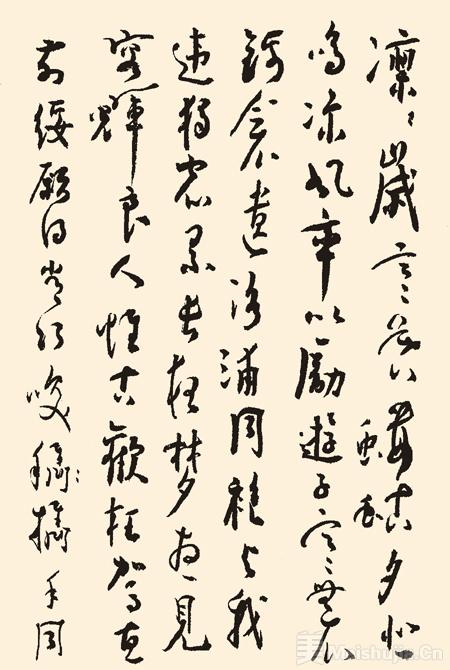 凜〻歲云暮螻蛄夕悲
鳴涼風率以勵遊子寒無衣
錦衾遺洛浦同袍與我
違獨宿累長夢想見
容輝良人惟古歡枉駕惠
前綏願得常巧笑攜手同
Meishujia.Cn